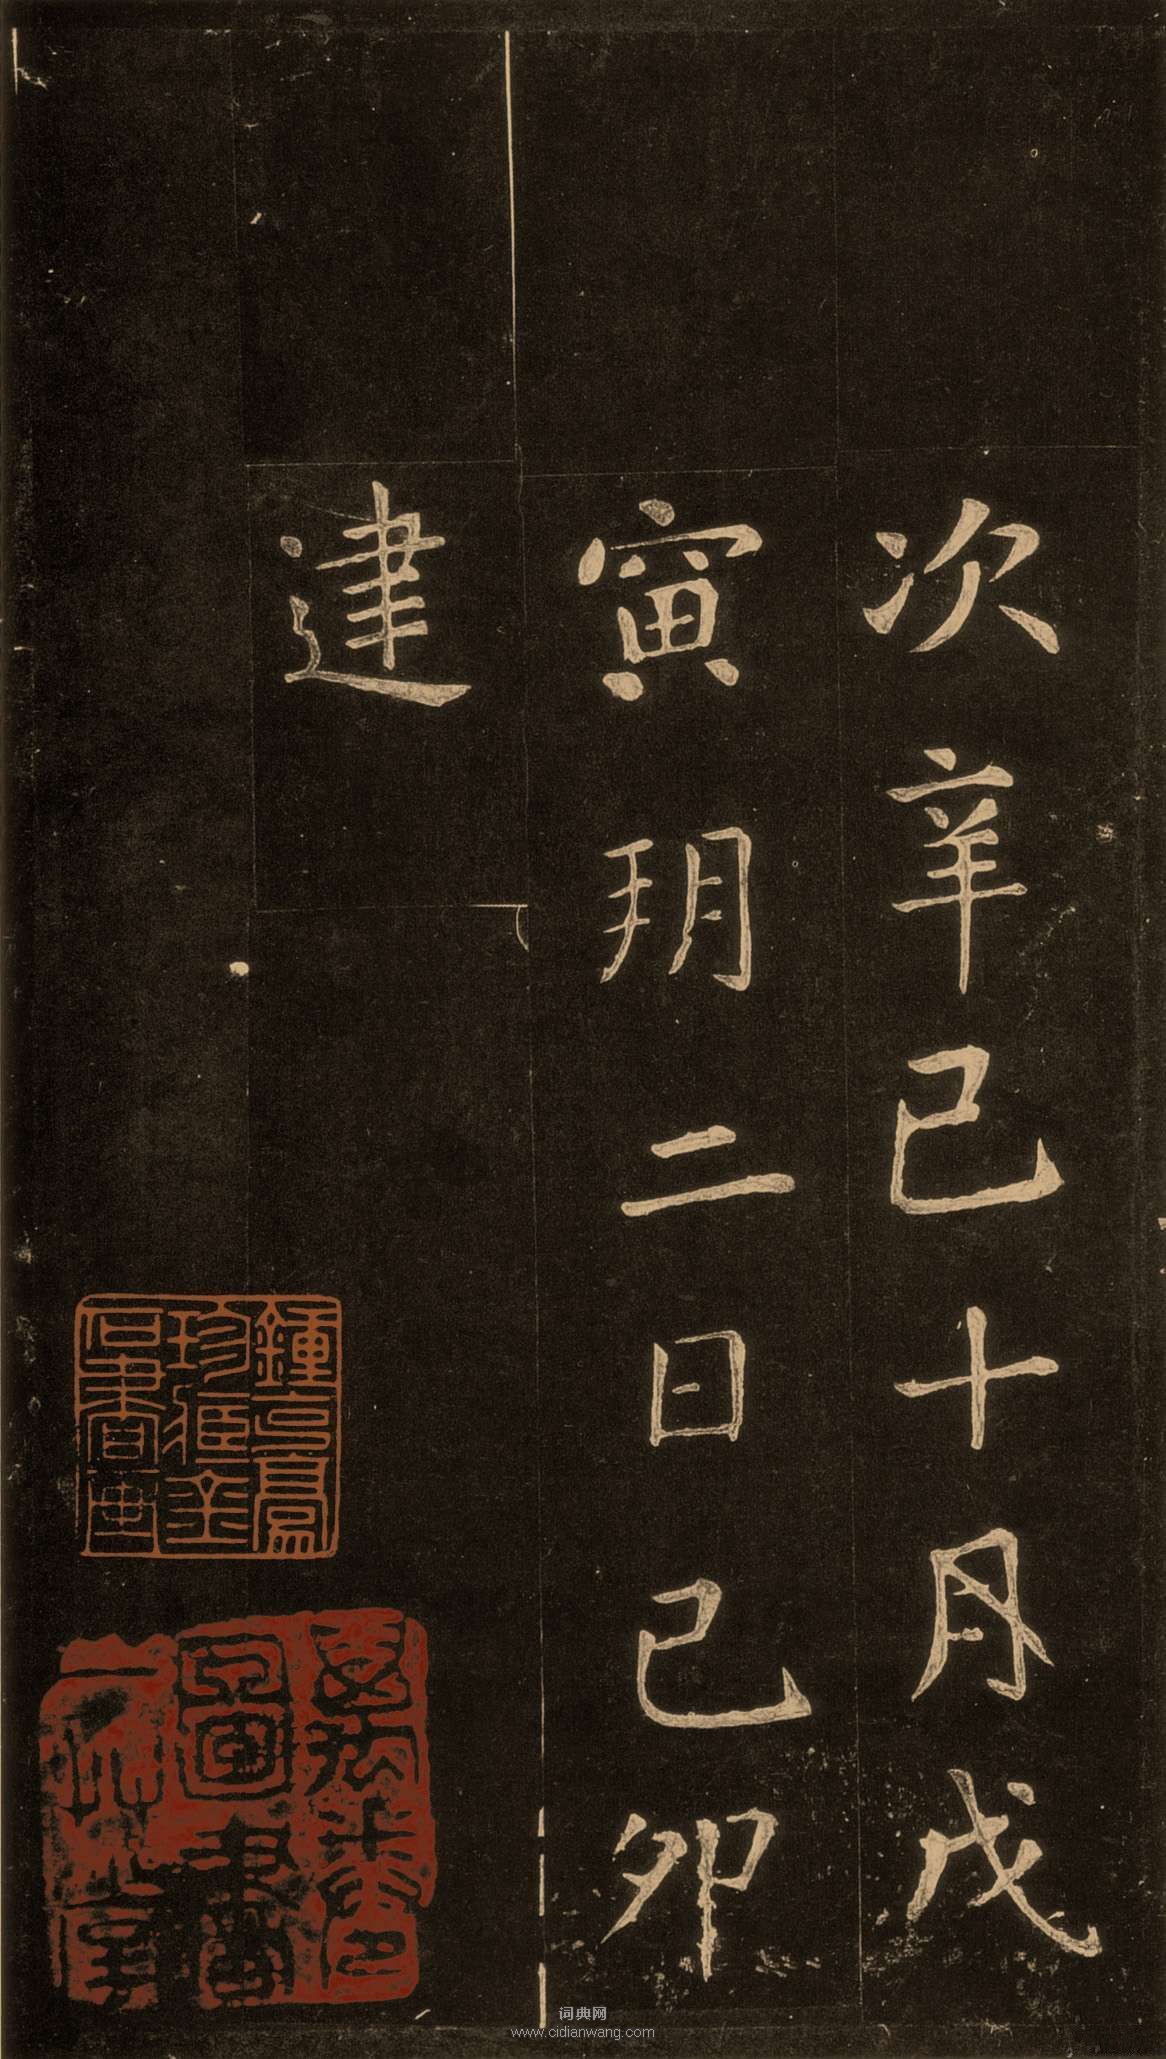 次辛巳十月戊
寅朔二日己卯
建
珍藏金
石書画
词典网
www.cidianwang.com